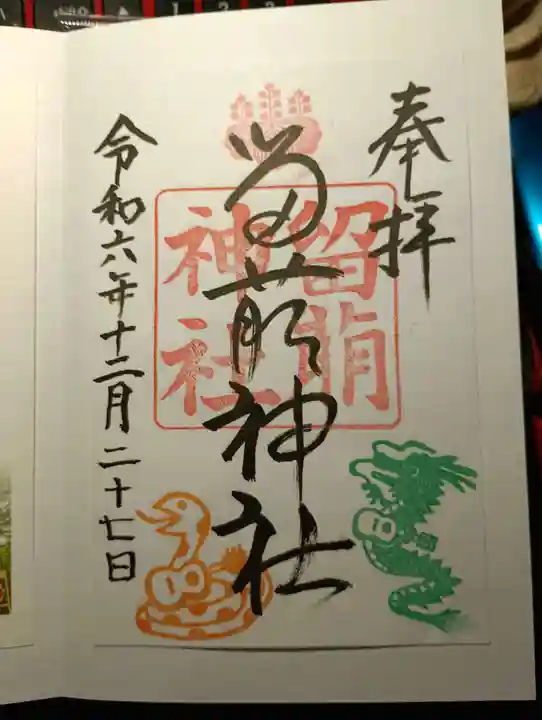 奉拝
留萌神社
留萌
神社
令和六年十二月二十七日